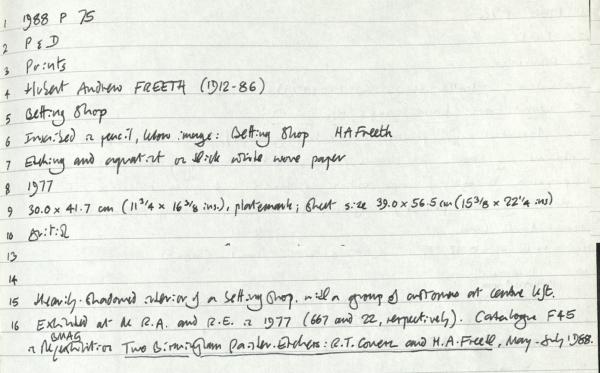 1 1988 P 75
2 P & D
3 Prints
4 Hubert Andrew FREETH (1912-86)
5 Betting Shop
6 Inscribed in pencil, below image: Betting Shop HAFreeth
7 Etching and aquatint on thick white wove paper
8 1977
9 30.0 x 41.7 cm (11 3/4 x 16 3/8 ins.), platemark; sheet size 39.0 x 56.5 cm (15 3/8 x 22 1/4 ins)
10 British
13
14
15 Heavily-shadowed interior of a betting shop, with a group of customers at centre left.
16 Exhibited at the R.A. and R.E. in 1977 (667 and 22, respectively). Catalogue F45
BMAG
in exhibition Two Birmingham Painter-Etchers: R.T. Cowern and H.A. Freeth, May-July 1988.